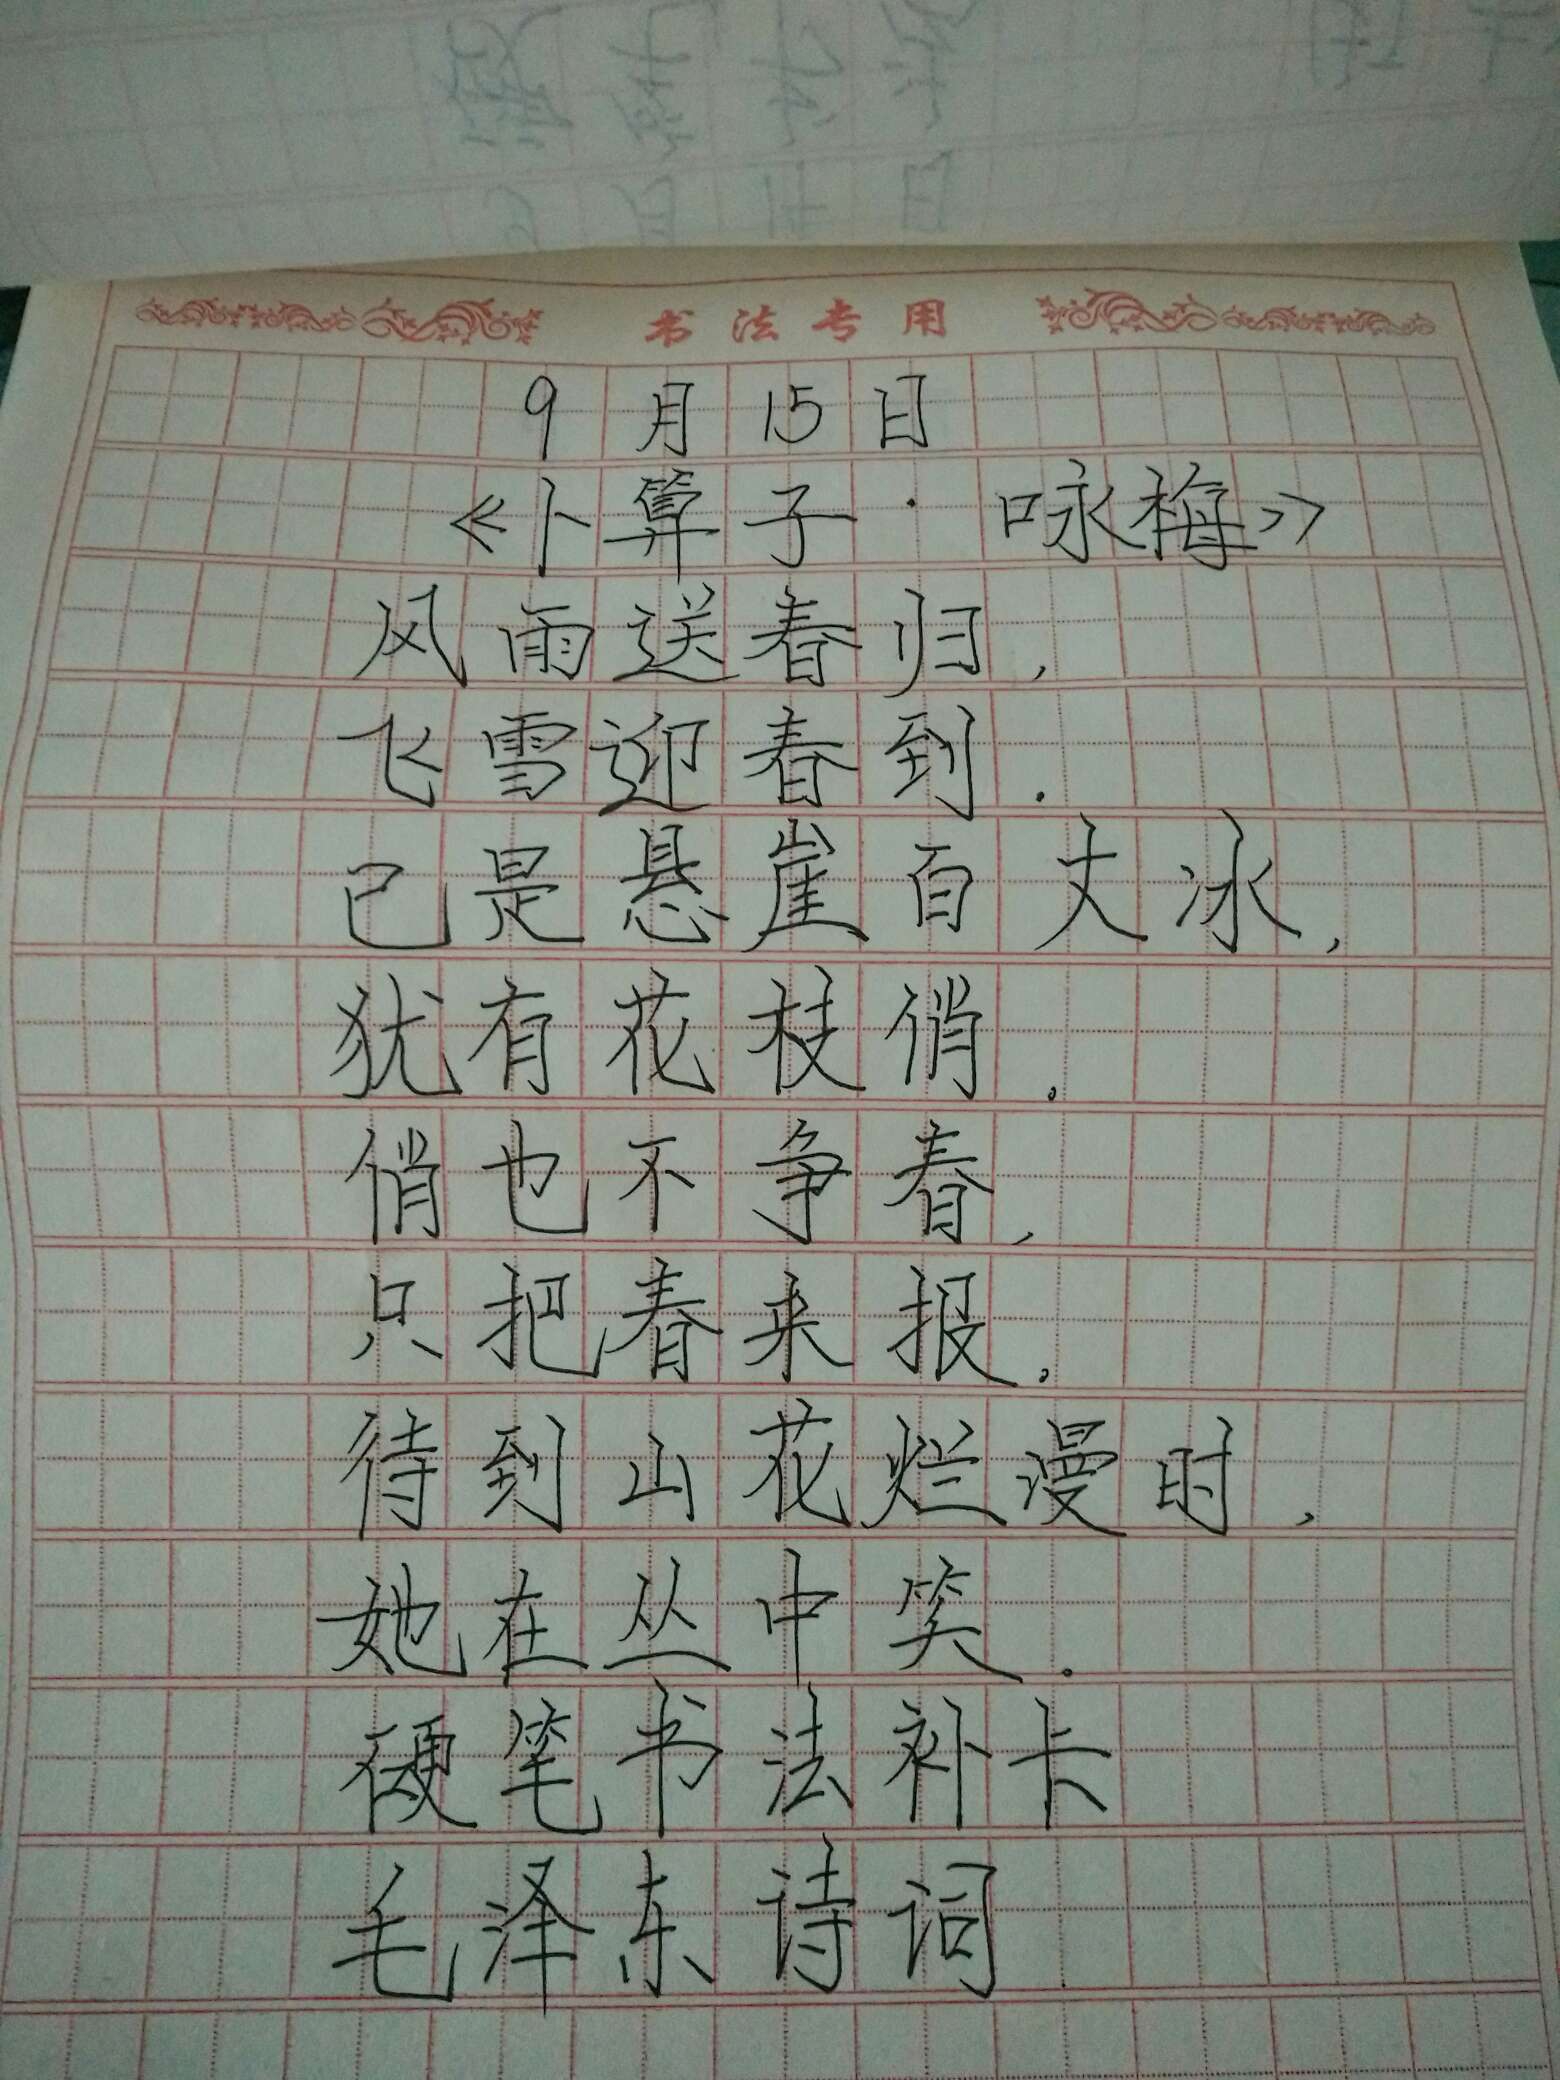 书法专用
9月15日
《卜算子·咏梅》
风雨送春归,
飞雪迎春到.
已是悬崖百丈冰,
犹有花枝俏.
俏也不争春,
只把春来报.
待到山花烂漫时,
她在丛中笑.
硬笔书法补卡
毛泽东诗词